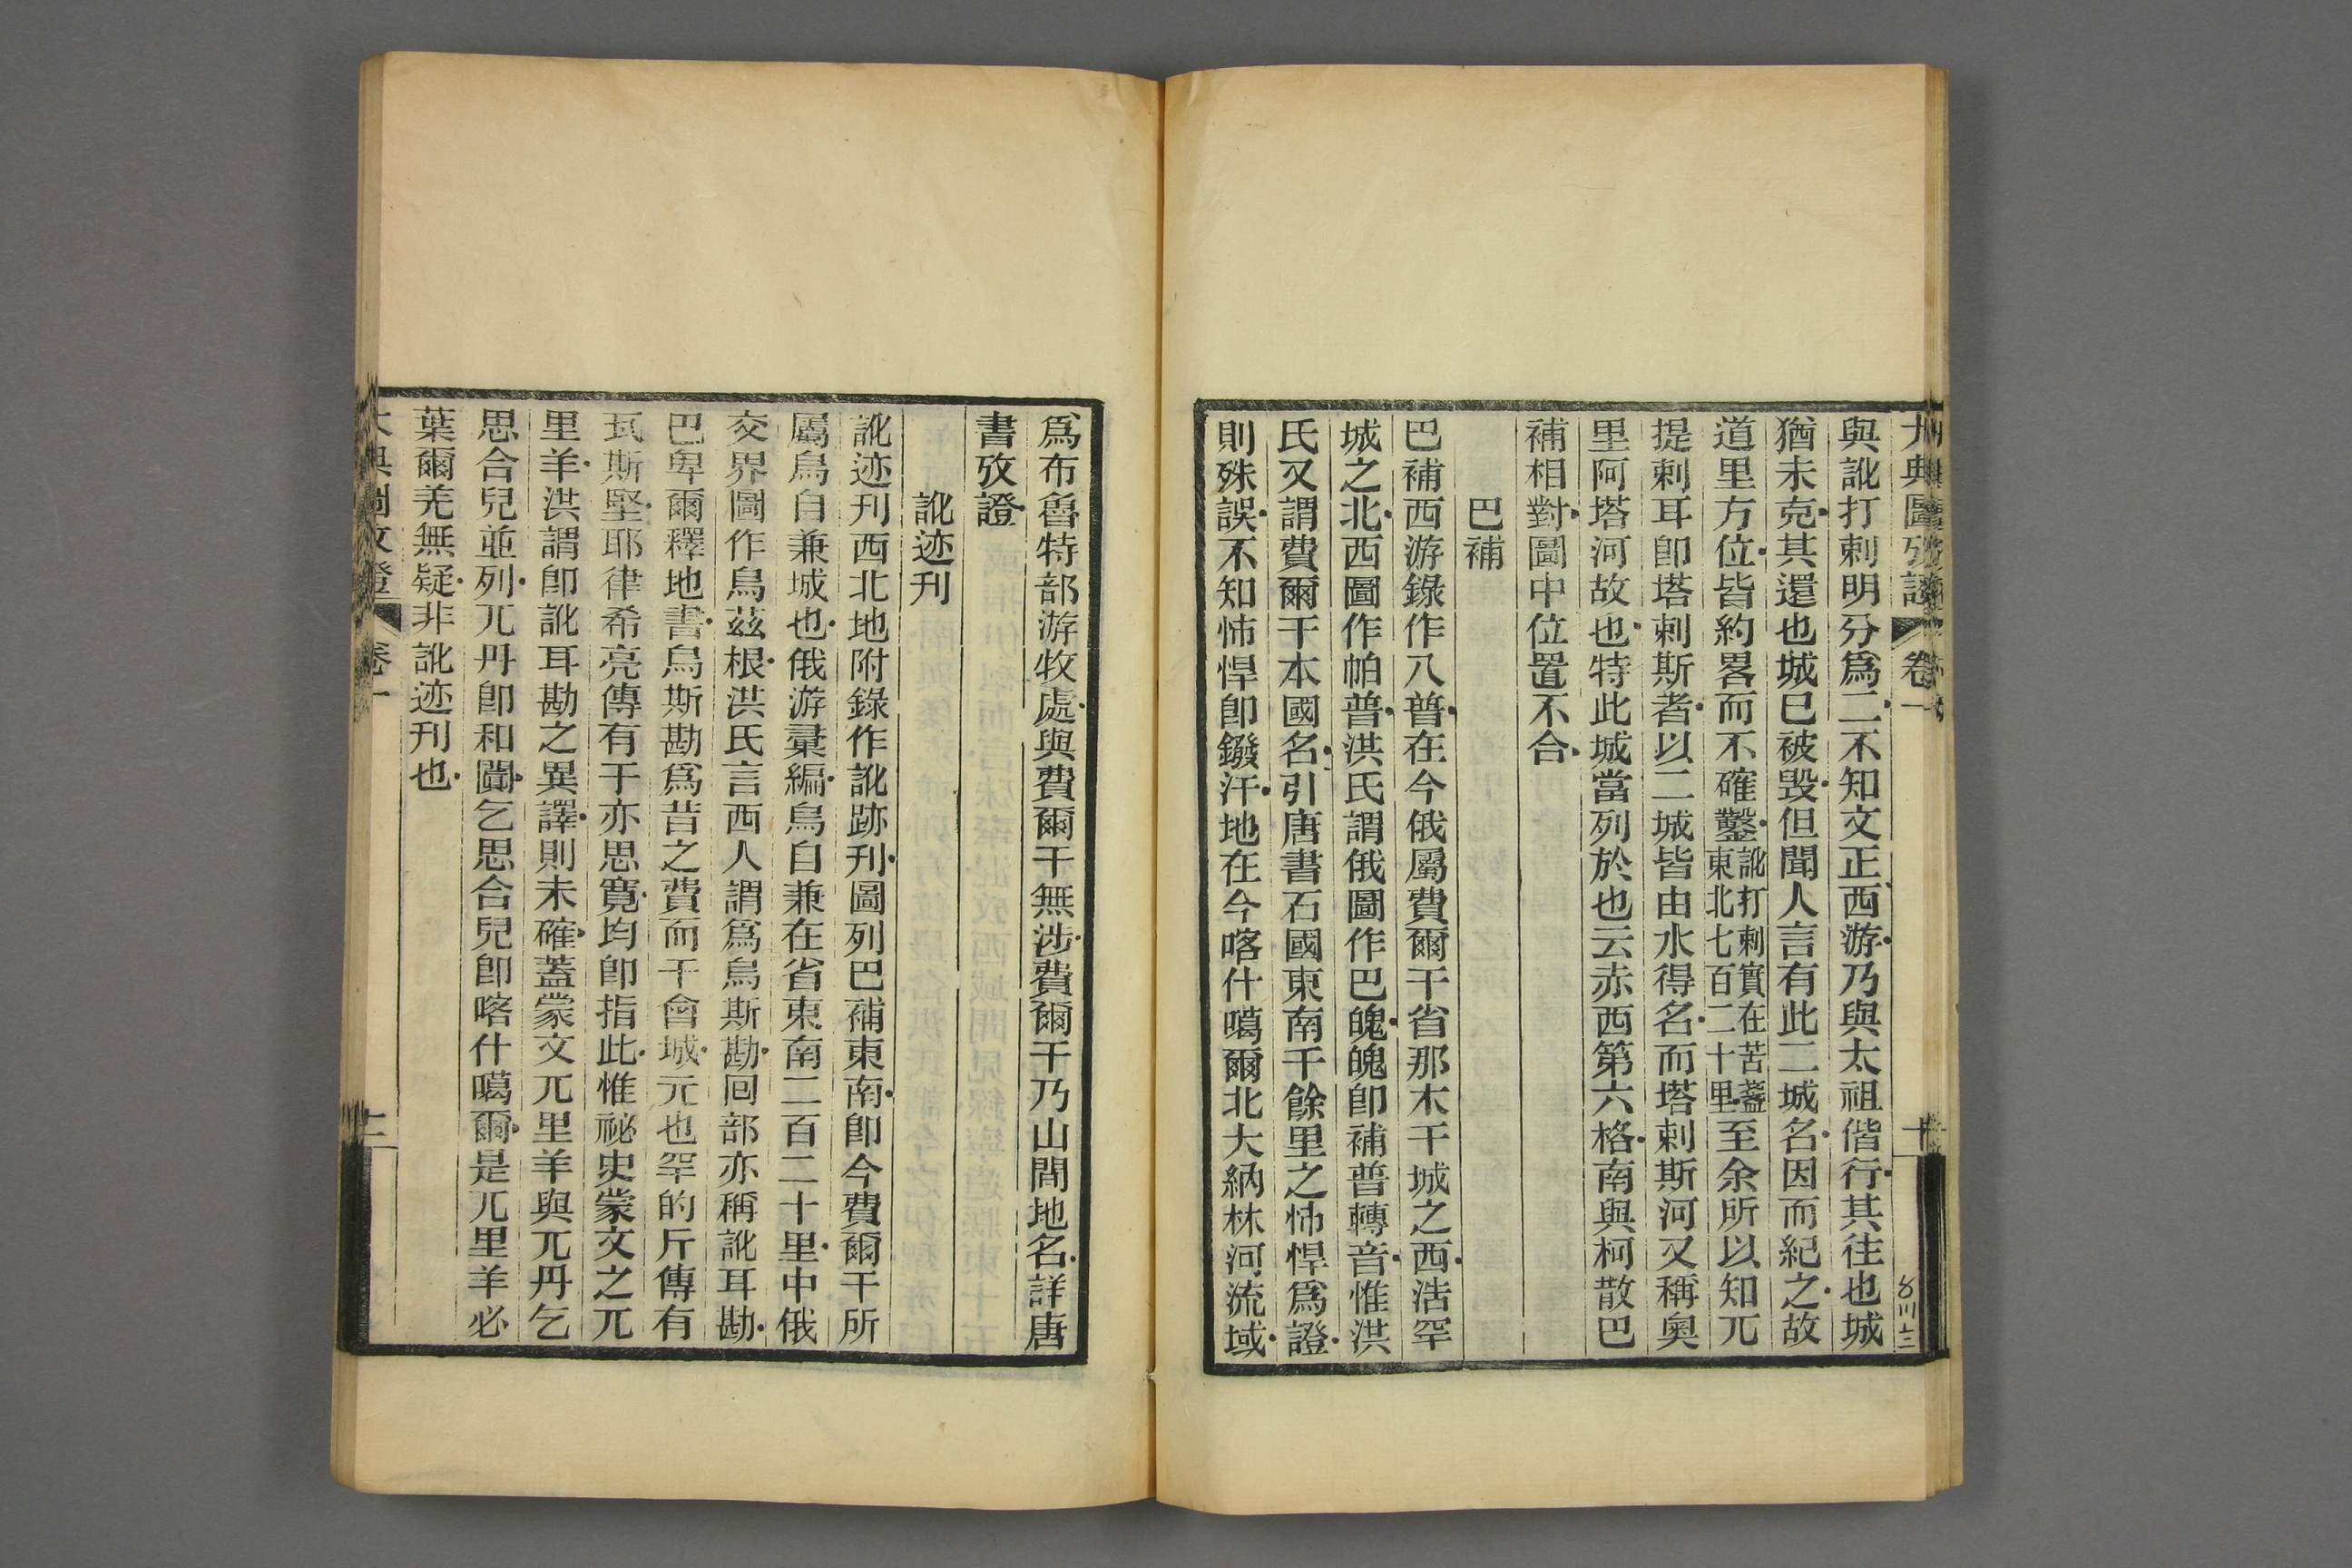 大典圖攷證 卷一 十
與訛打剌明分爲二不知文正西游乃與太祖偕行其往也城
猶未克其還也城已被毁但聞人言有此二城名因而紀之故
道里方位皆約畧而不確鑿訛打剌實在苦盞東北七百二十里至余所以知兀
提剌耳卽塔剌斯者以二城皆由水得名而塔剌斯河又稱奥
里阿塔河故也特此城當列於也云赤西第六格南與柯散巴
補相對圖中位置不合
巴補
巴補西游錄作八普在今俄屬費爾干省那木干城之西浩罕
城之北西圖作帕普洪氏謂俄圖作巴魄魄卽補普轉音惟洪
氏又謂費爾干本國名引唐書石國東南千餘里之㤄悍爲證
則殊誤不知㤄悍卽鏺汗地在今喀什噶爾北大納林河流域
爲布魯特部游牧處與費爾干無涉費爾干乃山間地名詳唐
書攷證
訛迹刊
訛迹刊西北地附錄作訛跡刊圖列巴補東南卽今費爾干所
屬烏自兼城也俄游彙編烏自兼在省東南二百二十里中俄
交界圖作烏茲根洪氏言西人謂爲烏斯勘囘部亦稱訛耳勘
巴卑爾釋地書烏斯勘爲昔之費而干會城元也罕的斤傳有
瓦斯堅耶律希亮傳有于亦思寬均卽指此惟祕史蒙文之兀
里羊洪謂卽訛耳勘之異譯則未確蓋蒙文兀里羊與兀丹乞
思合兒並列兀丹卽和闐乞思合兒卽喀什噶爾是兀里羊必
葉爾羌無疑非訛迹刊也
大典圖攷證 卷一